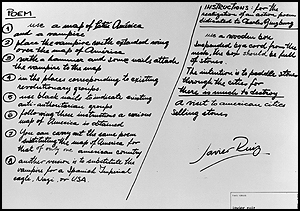 POEM
① use a map of Latin America
and a vampire
② place the vampire with extended wings
over the map of America
③ with a hammer and some nails attach
the vampire to the map
④ in the places corresponding to existing
revolutionary groups
⑤ use black nails to indicate existing
anti-authoritarian groups
⑥ following these instructions a curious
map of America is obtained
⑦ You can carry out the same poem
substituting the map of America for
that of only one american country
⑧ another version is to substitute the
vampire for a Spanish Imperial
eagle, Nazi, or USA.
INSTRUCTIONS: for the
realization of an action poem
dedicated to
use a wooden box
suspended by a cord from the
neck, this box should be full
of stones.
The intention is to peddle stones
through the cities for
there is much to destroy
a visit to american cities
selling stones
Javier Ruiz